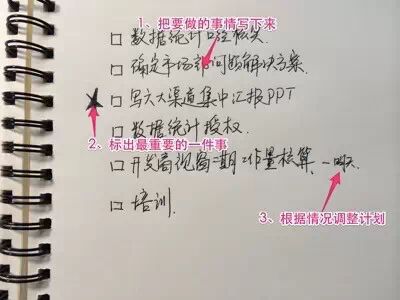 1、把要做的事情写下来
数据统计口径核实.
确定市场部问题解决方案.
★ 写六大渠道集中汇报PPT
数据统计授权.
2、标出最重要的一件事
开发商视窗二期工作量核算.
3、根据情况调整计划
培训.